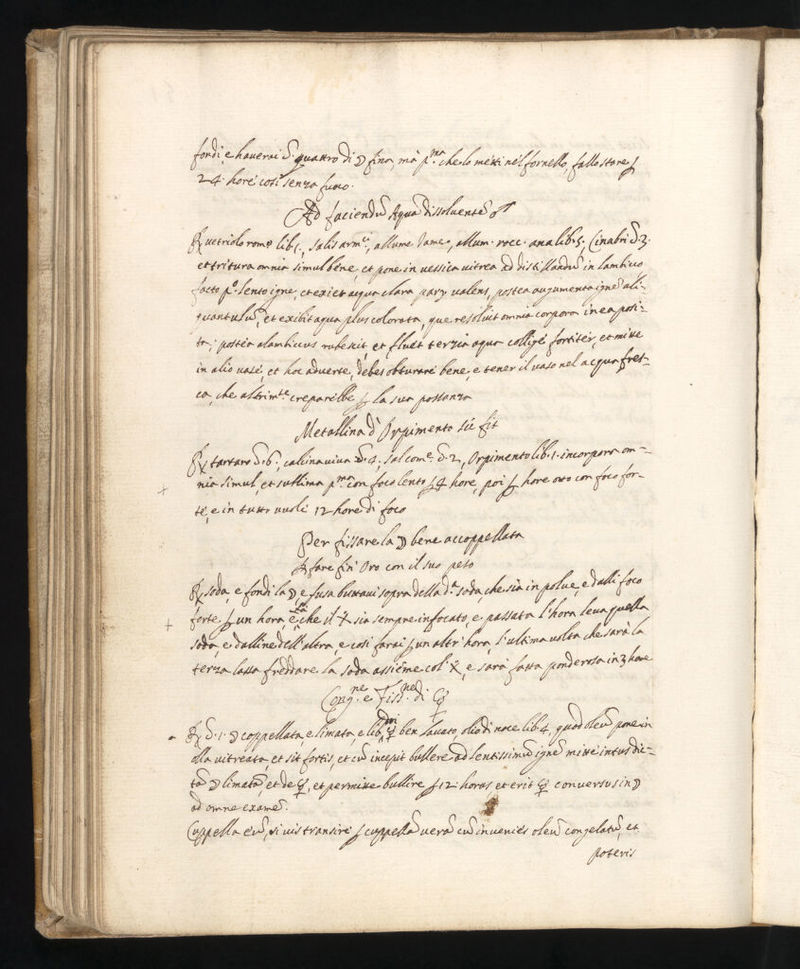 fondi, e haverai ℥. quattro di ☽ fina, mà p.ᵐᵃ che lo metti nel fornello, fallo stare p
24 hore così senza fuoco.
Ad faciendũ Aquã dissoluentẽ ♂
℞ vetriolo rom.º lib. 1., salis arm.ⁱ, allum. , allum. rocc. ana lib. 5. Cinabri ℥. 3.
et tritura omnia simul bene, et pone in vessica vitrea ad distillandũ in lambicco
facto p.º lento igne, et exiet aqua clara parũ valens, postea augumenta ignẽ ali-
quantulũ, et exibit aqua plus colorata, que resoluit omnia corpora in ea posi-
ta; postea alambicus rubescit, et fluet terzia aqua collige fortiter, et mitte
in alio vase, et hoc adverte, debes obturare bene, e tener il vaso nel acqua fres-
ca, che altrim.ᵗᵉ creparebbe p la sua possanza
Metallina d'Orpimento sic fit
℞ tartaro ℥. 6., calcina viva ℥. 4. sal com.ᵉ ℥. 2, Orpimento lib. 1. incorpora om-
nia simul, et sublima p.ᵐᵃ con foco lento p 4 hore, poi p hore otto con foco for-
te, e in tutto vuole 12 hore di foco
Per fissare la ☽ bene accoppellata
p fare fin' Oro con il suo peso
℞ soda, e fondi la ☽, e fusa buttavi sopra della d.ᵃ soda che sia in polve, e dalli foco
forte p un hora, e fà che il sia sempre infocato, e passata l'hora leva quella
soda, e dalline dell'altra, e così farai p un altr'hora, l'ultima volta che sarà la
terza lassa freddare la soda assieme col' , e sarà fatta ponderosa in 3 hore
Cong.ⁿᵉ e Fiss.ⁿᵉ di ☿
℞ ℥. 1. ☽ coppellata, e limata, e lib. ☿ ben lavato, olio di noce lib. 4, quod oleũ pone in
olla vitreata, et sit fortis, et cũ incepit bullere ad lentissimũ ignẽ mitte intus dic-
tã ☽ limatã, et de ☿, et permitte bullire p 12 horas, et erit ☿ conversus in ☽
ad omne examẽ.
Cuppella eũ, si vis transire p cuppellã verã cũ invenies oleũ congelatũ, et
poteris